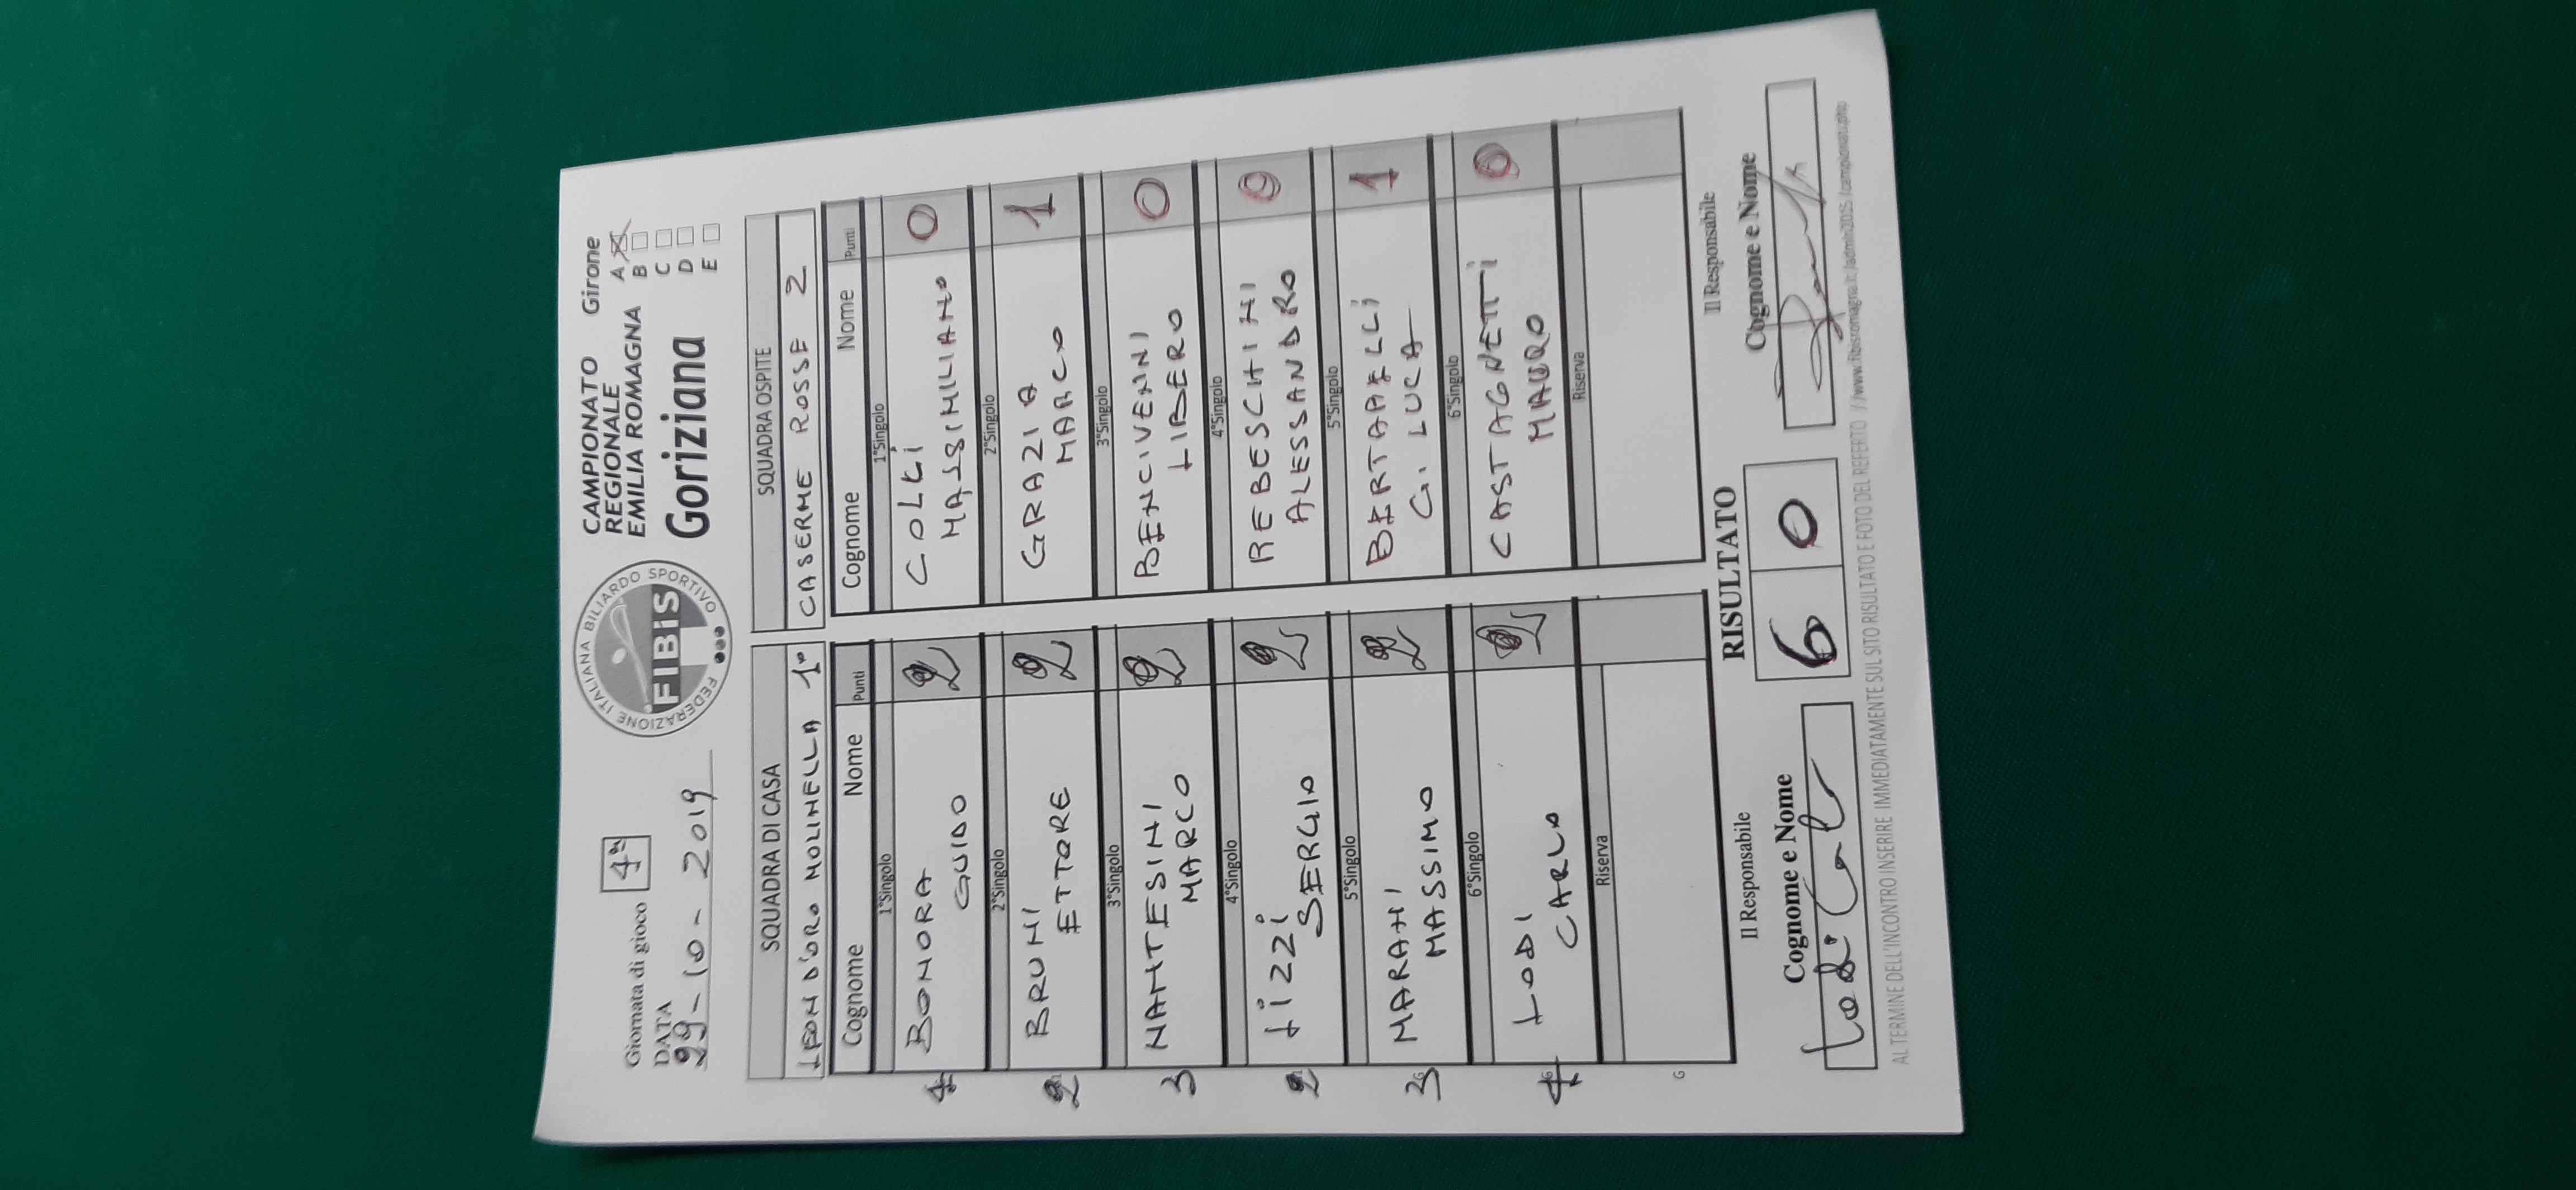 Giornata di gioco 4ª
DATA
29-10-2019
FEDERAZIONE ITALIANA BILIARDO SPORTIVO
FIBiS
CAMPIONATO
REGIONALE
EMILIA ROMAGNA
Goriziana
Girone
A X
B
C
D
E
SQUADRA DI CASA
LEON D'ORO MOLINELLA 1°
Cognome Nome Punti
1°Singolo
BONORA
GUIDO 2
2°Singolo
BRUNI
ETTORE 2
3°Singolo
NANTESINI
MARCO 2
4°Singolo
LIZZI
SERGIO 2
5°Singolo
MARANI
MASSIMO 2
6°Singolo
LODI
CARLO 2
Riserva
4
2
3
2
3
4
G
SQUADRA OSPITE
CASERME ROSSE 2
Cognome Nome Punti
1°Singolo
COLLI
MASSIMILIANO 0
2°Singolo
GRAZIA
MARCO 1
3°Singolo
BENCIVENNI
LIBERO 0
4°Singolo
REBESCHINI
ALESSANDRO 0
5°Singolo
BERTARELLI
G. LUCA 1
6°Singolo
CASTAGNETTI
MAURO 0
Riserva
Il Responsabile
Cognome e Nome
Lodi Carlo
RISULTATO
6 0
Il Responsabile
Cognome e Nome
AL TERMINE DELL'INCONTRO INSERIRE IMMEDIATAMENTE SUL SITO RISULTATO E FOTO DEL REFERTO //www.fibisromagna.it/admin2015/campionati.php